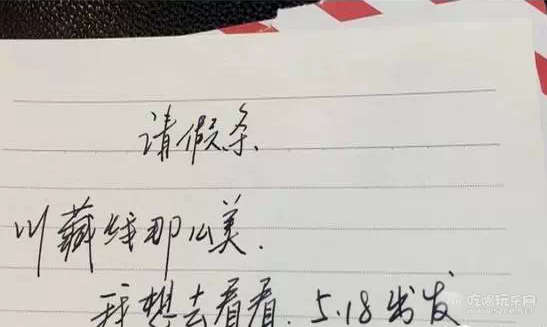 请假条
川藏线那么美.
我想去看看. 5.18出发
吃喝玩乐网